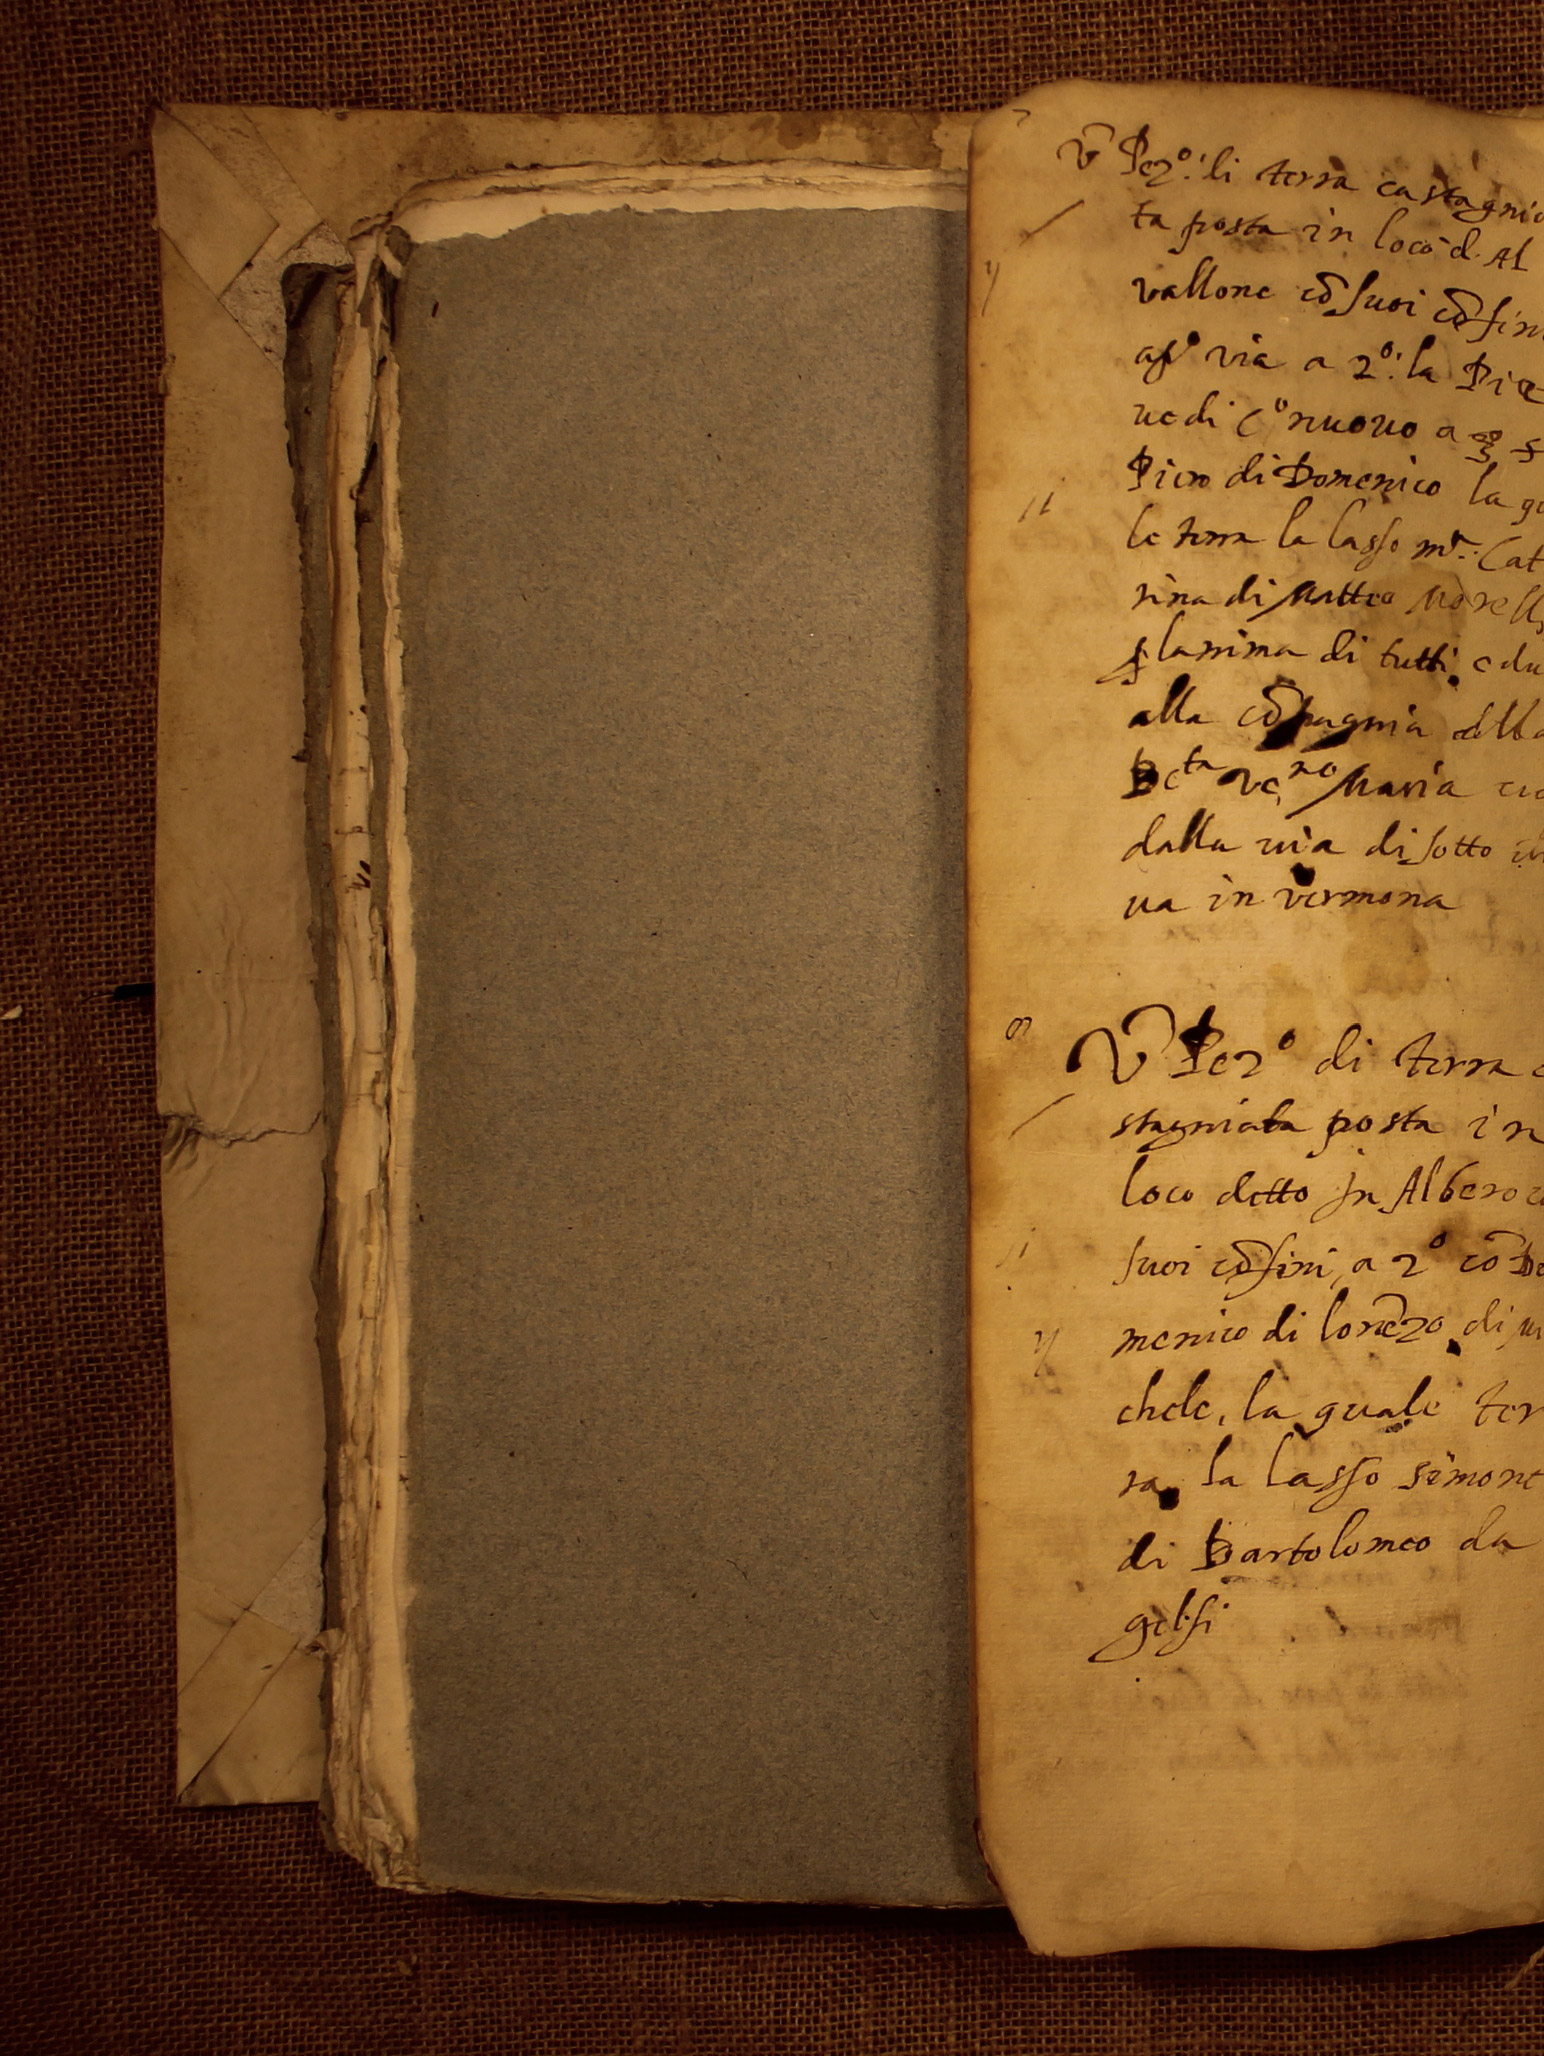 7
V Pez.º: li terra castagnia
ta posta in loco d. Al
vallone cō suoi cōfin
ap.º via a 2º: la Pie
ue di C.º nuouo a 3º
Piero di Domenico la qu
le terra la lasso m.ª: Cat
rina di Matteo Morelli
ꝑ lanima di tutti, e du
alla cōpagnia della
Be.ta Ve.ne Maria
dalla via di sotto
ua in vermona
8
V Pezº di terra c
stagniata posta in
loco detto in Albero
suoi cōfini, a 2º cō Do
menico di lorēzo di Mi
chele, la quale ter
ra la lasso simone
di Bartolomeo da
gelsi